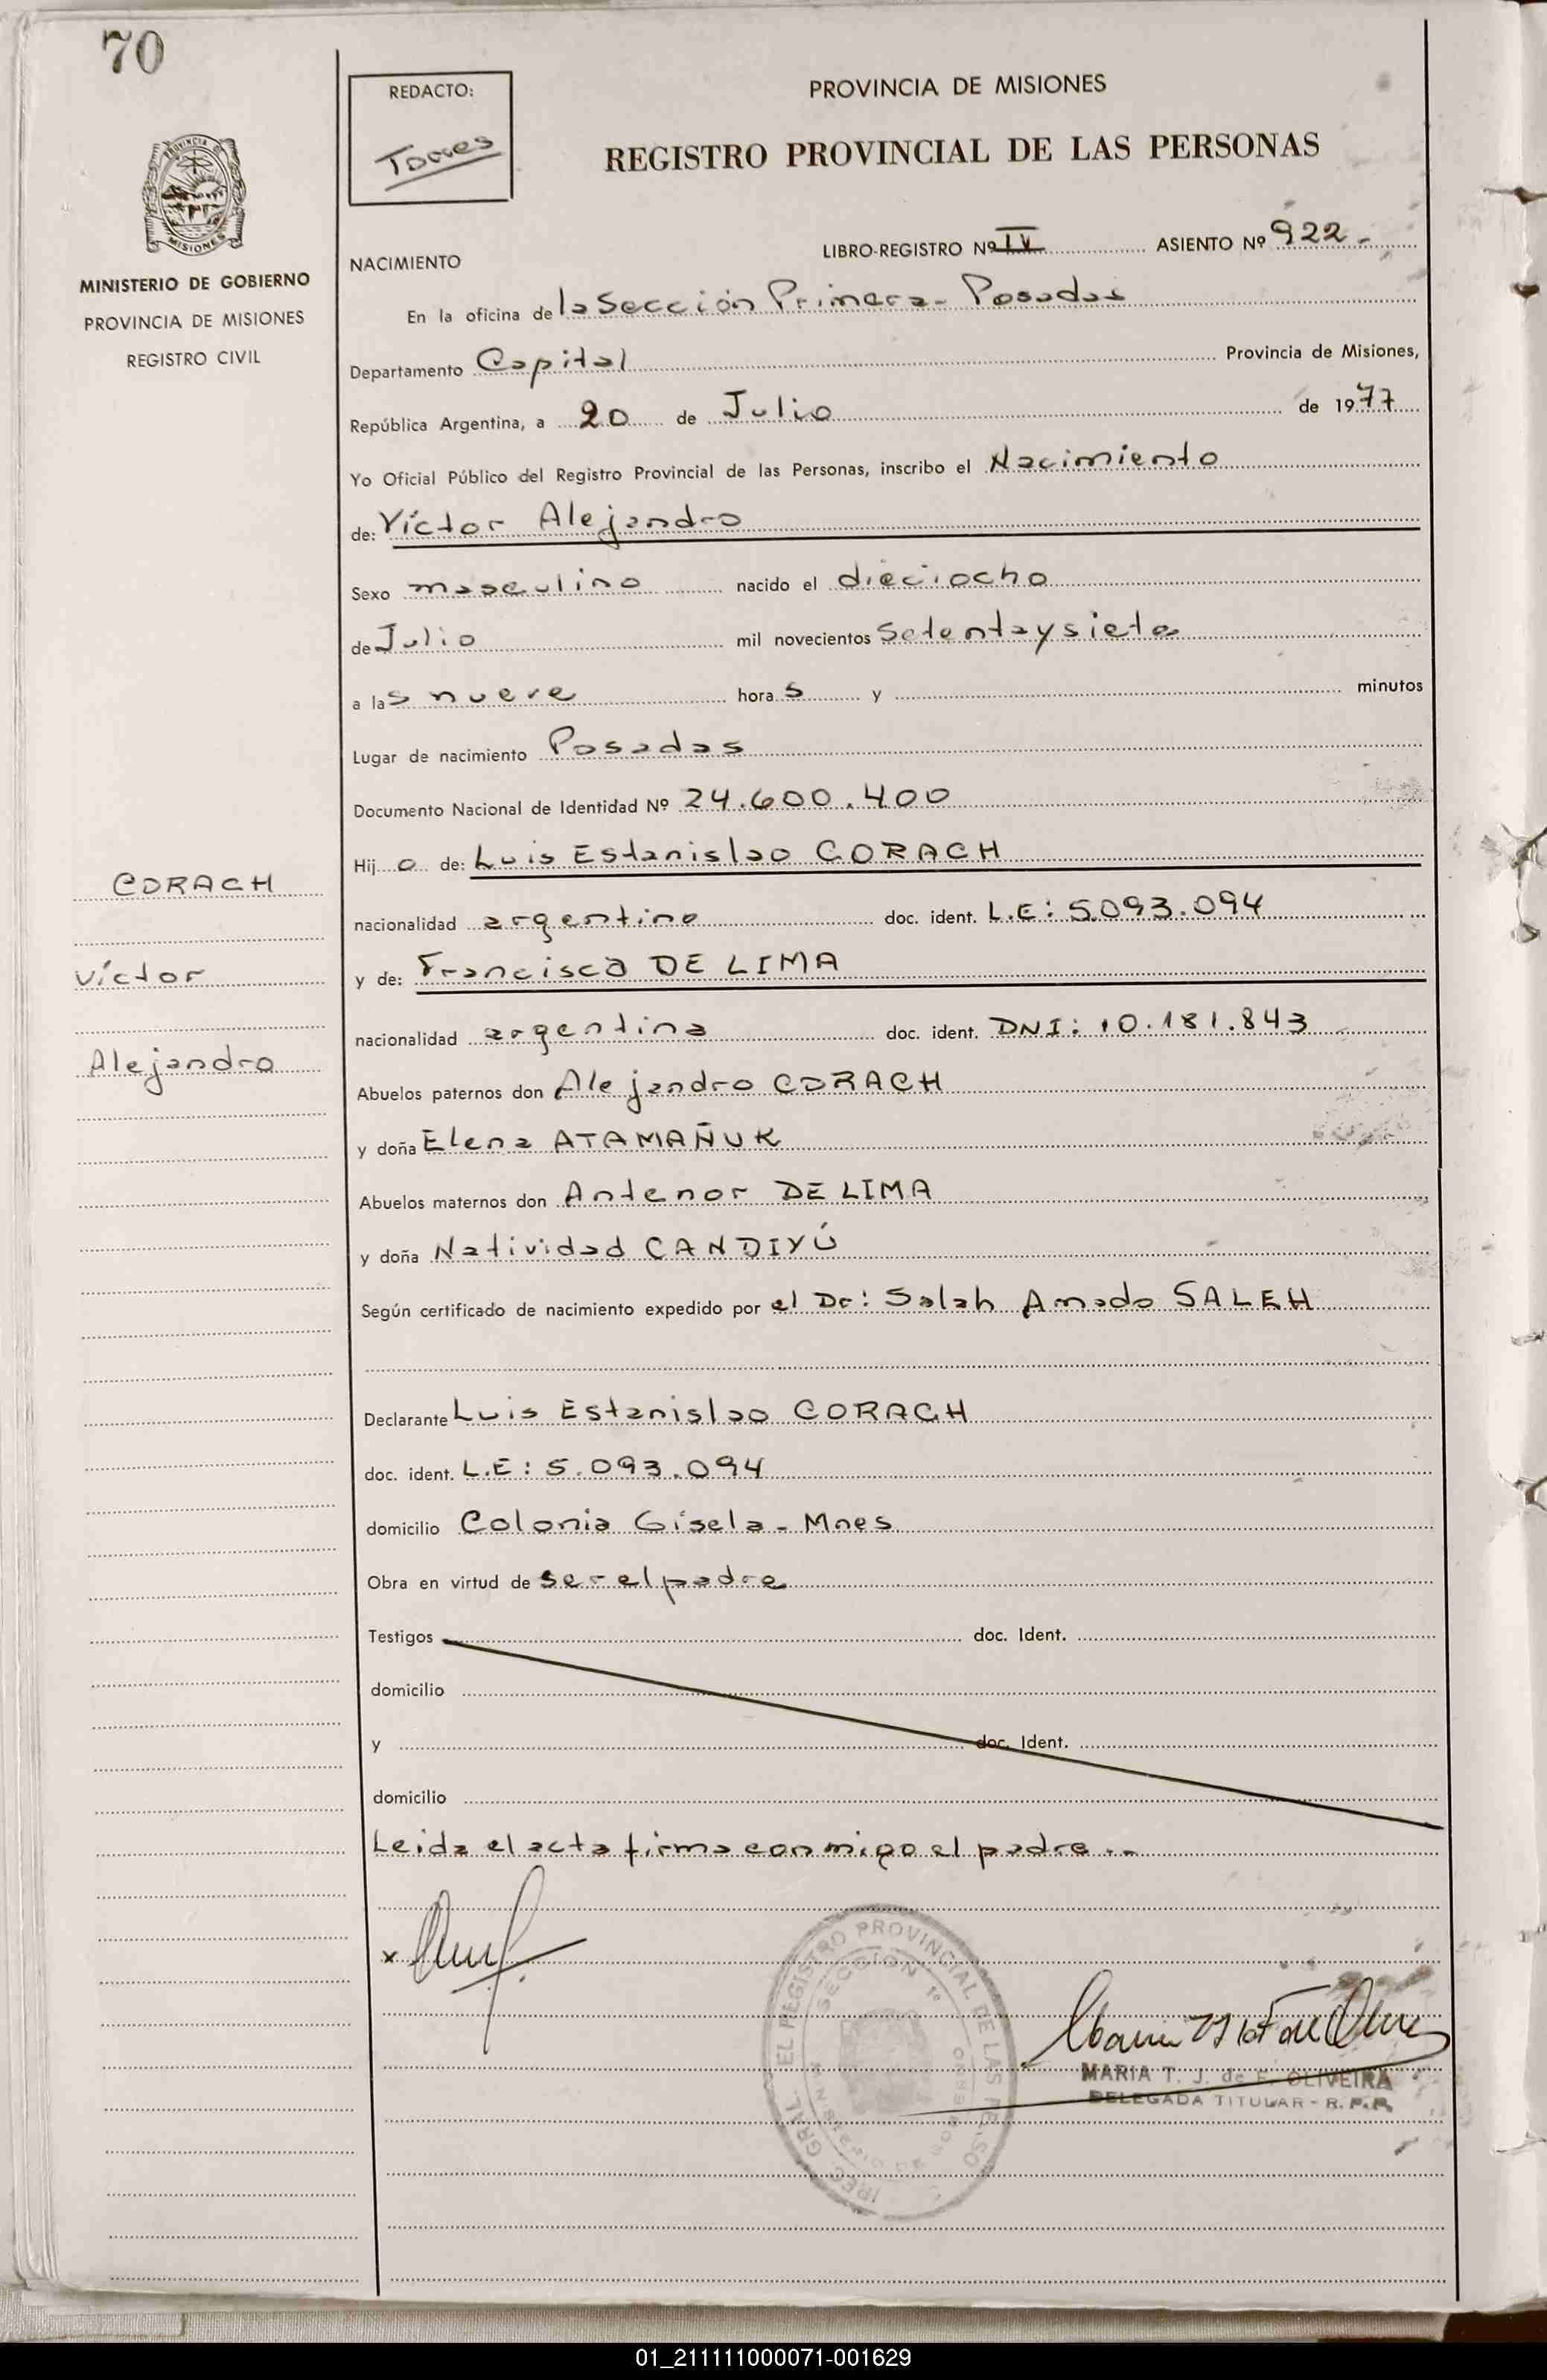 70
PROVINCIA DE MISIONES
MINISTERIO DE GOBIERNO
PROVINCIA DE MISIONES
REGISTRO CIVIL
CORACH
Víctor
Alejandro
REDACTO:
Torres
PROVINCIA DE MISIONES
REGISTRO PROVINCIAL DE LAS PERSONAS
LIBRO-REGISTRO Nº IV ASIENTO Nº 922-
NACIMIENTO
En la oficina de la Sección Primera - Posadas
Departamento Capital Provincia de Misiones,
República Argentina, a 20 de Julio de 1977
Yo Oficial Público del Registro Provincial de las Personas, inscribo el Nacimiento
de: Víctor Alejandro
Sexo masculino nacido el dieciocho
de Julio mil novecientos setentaysiete
a las nueve horas y minutos
Lugar de nacimiento Posadas
Documento Nacional de Identidad Nº 24.600.400
Hijo de: Luis Estanislao CORACH
nacionalidad argentino doc. ident. L.E: 5.093.094
y de: Francisca DE LIMA
nacionalidad argentina doc. ident. DNI: 10.181.843
Abuelos paternos don Alejandro CORACH
y doña Elena ATAMAÑUK
Abuelos maternos don Antenor DE LIMA
y doña Natividad CANDIYÚ
Según certificado de nacimiento expedido por el Dr: Salah Amado SALEH
Declarante Luis Estanislao CORACH
doc. ident. L.E: 5.093.094
domicilio Colonia Gisela - Mnes
Obra en virtud de ser el padre
Testigos doc. Ident.
domicilio
y doc. Ident.
domicilio
Leida el acta firma conmigo el padre..
x
REGISTRO PROVINCIAL DE LAS
SECCION 1º
MARIA T. J. de F. OLIVEIRA
DELEGADA TITULAR - R. P. P.
01_211111000071-001629